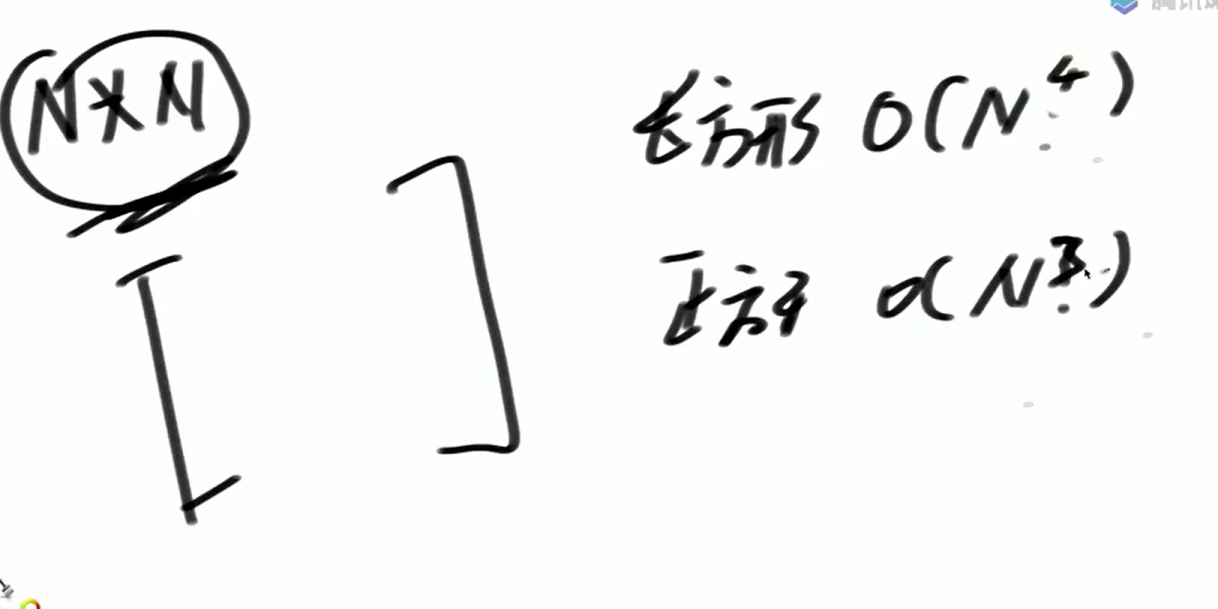 N×N
长方形 O(N⁴)
正方形 O(N³)
腾讯课